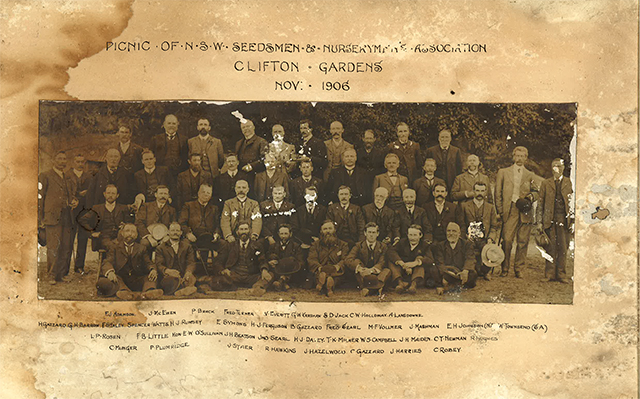 PICNIC · OF · N · S · W · SEEDSMEN · & · NURSERYMEN'S · ASSOCIATION
CLIFTON · GARDENS
NOV: · 1906
J McEwen P Branch Fred Turner V Everitt G W D Jack C W Holloway A Lansdowne
H Gazzard G H Spencer Watts H J Rumsey E Symons H J Ferguson B Gazzard Fred Searl M F Vollmer J Mashman E H Johnson W Townsend (S A)
L P Rosen F B Little Hon E W O'Sullivan J H Beatson Jno Searl H J Daley T K Milner W S Campbell J H Maiden C T Newman R Hughes
C Munger P Plumridge J Stier R Hawkins J Hazelwood C Gazzard J Harries C Robey